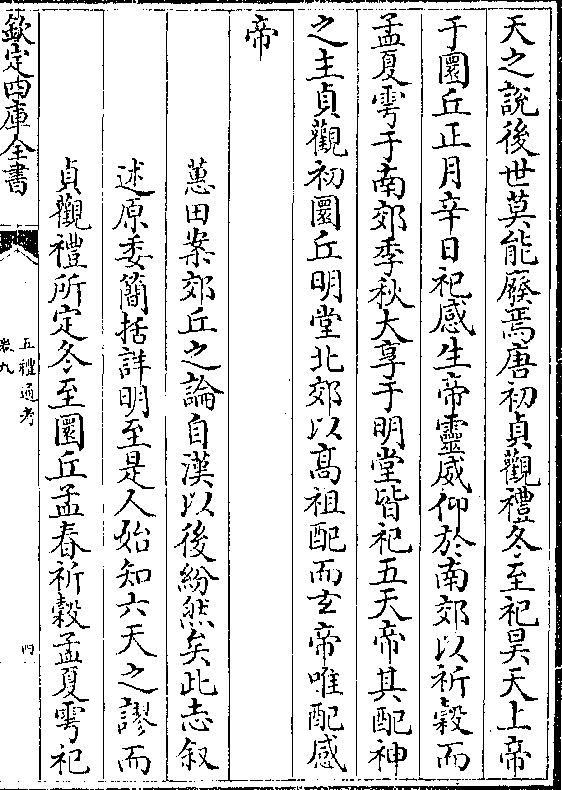 天之說後世莫能廢焉唐初貞觀禮冬至祀昊天上帝
于圜丘正月辛日祀感生帝靈威仰於南郊以祈穀而
孟夏雩于南郊季秋大享于明堂皆祀五天帝其配神
之主貞觀初圜丘明堂北郊以髙祖配而𤣥帝唯配感
帝
蕙田案郊丘之論自漢以後紛然矣此志叙
述原委簡括詳明至是人始知六天之謬而
貞觀禮所定冬至圜丘孟春祈穀孟夏雩祀
欽定四庫全書
五禮通考
卷九
四